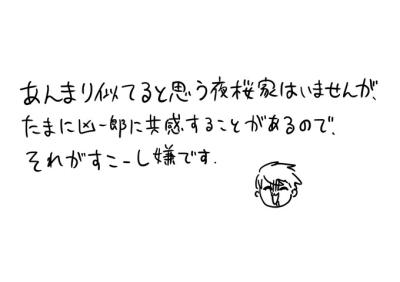 あんまり似てると思う夜桜家はいませんが、
たまに凶一郎に共感することがあるので、
それがすこーし嫌です.